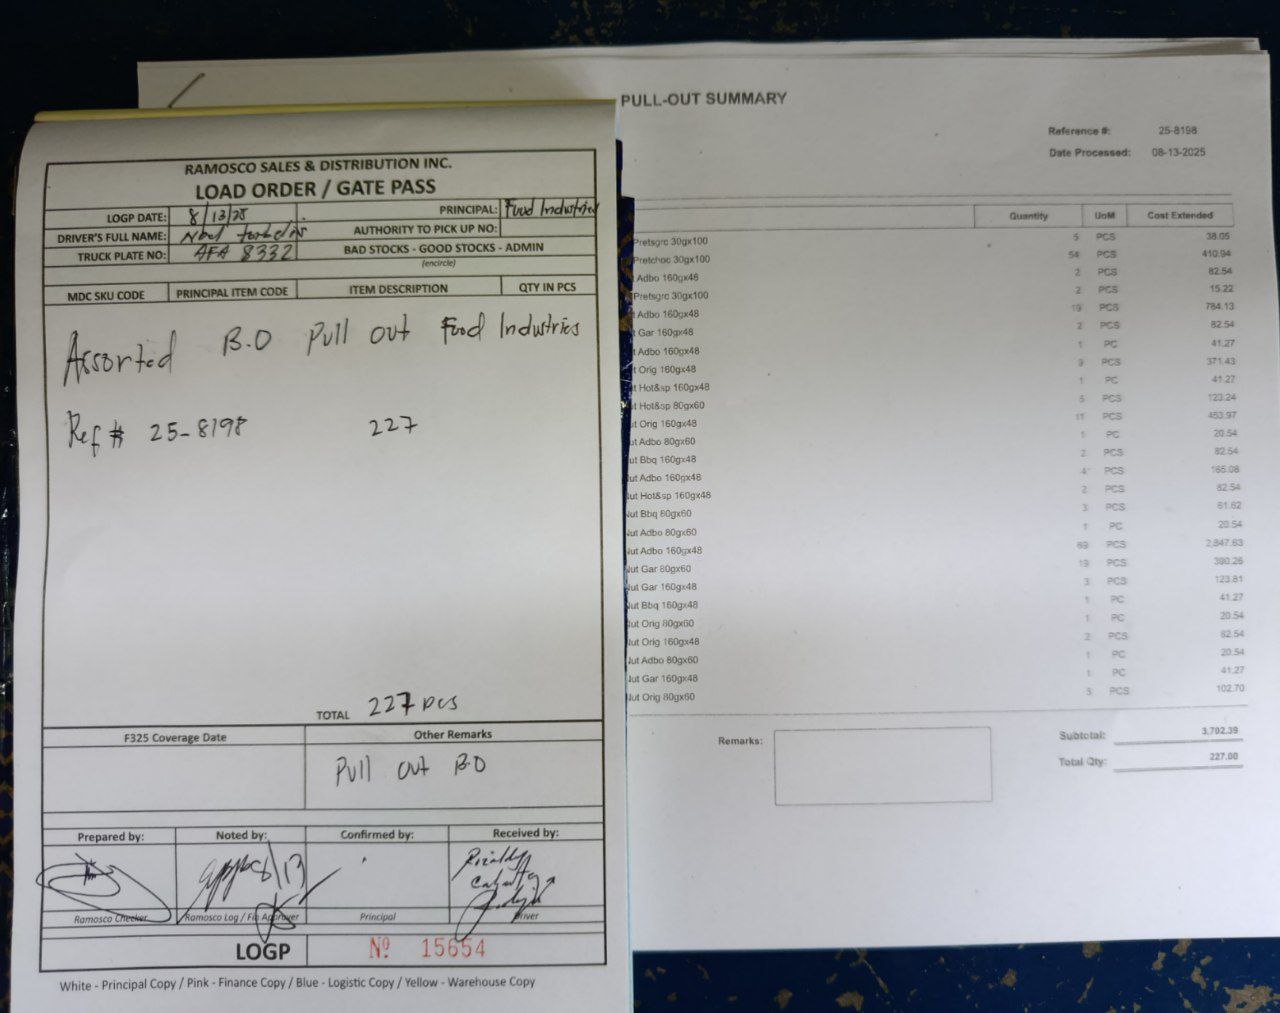 RAMOSCO SALES & DISTRIBUTION INC.
LOAD ORDER / GATE PASS
LOGP DATE: 8/13/25 PRINCIPAL: Food Industries
DRIVER'S FULL NAME: AUTHORITY TO PICK UP NO:
TRUCK PLATE NO: AFA 8332 BAD STOCKS - GOOD STOCKS - ADMIN
(encircle)
MDC SKU CODE PRINCIPAL ITEM CODE ITEM DESCRIPTION QTY IN PCS
Assorted B.O Pull out Food Industries
Ref # 25-8198 227
TOTAL 227 pcs
F325 Coverage Date Other Remarks
Pull out B.O
Prepared by: Noted by: Confirmed by: Received by:
8/13
Ramosco Checker Ramosco Log / Fin Approver Principal Driver
LOGP Nº 15654
White - Principal Copy / Pink - Finance Copy / Blue - Logistic Copy / Yellow - Warehouse Copy
PULL-OUT SUMMARY
Reference #: 25-8198
Date Processed: 08-13-2025
Quantity UoM Cost Extended
Pretsgrc 30gx100 5 PCS 38.05
Pretchoc 30gx100 54 PCS 410.94
Adbo 160gx48 2 PCS 82.54
Pretsgrc 30gx100 2 PCS 15.22
t Adbo 160gx48 19 PCS 784.13
t Gar 160gx48 2 PCS 82.54
t Adbo 160gx48 1 PC 41.27
t Orig 160gx48 9 PCS 371.43
ut Hot&sp 160gx48 1 PC 41.27
ut Hot&sp 80gx60 6 PCS 123.24
ut Orig 160gx48 11 PCS 453.97
ut Adbo 80gx60 1 PC 20.54
ut Bbq 160gx48 2 PCS 82.54
ut Adbo 160gx48 4 PCS 165.08
ut Hot&sp 160gx48 2 PCS 82.54
ut Bbq 80gx60 3 PCS 61.62
ut Adbo 80gx60 1 PC 20.54
ut Adbo 160gx48 69 PCS 2,847.63
ut Gar 80gx60 19 PCS 390.26
ut Gar 160gx48 3 PCS 123.81
ut Bbq 160gx48 1 PC 41.27
ut Orig 80gx60 1 PC 20.54
ut Orig 160gx48 2 PCS 82.54
ut Adbo 80gx60 1 PC 20.54
ut Gar 160gx48 1 PC 41.27
ut Orig 80gx60 5 PCS 102.70
Remarks: Subtotal: 3,702.39
Total Qty: 227.00